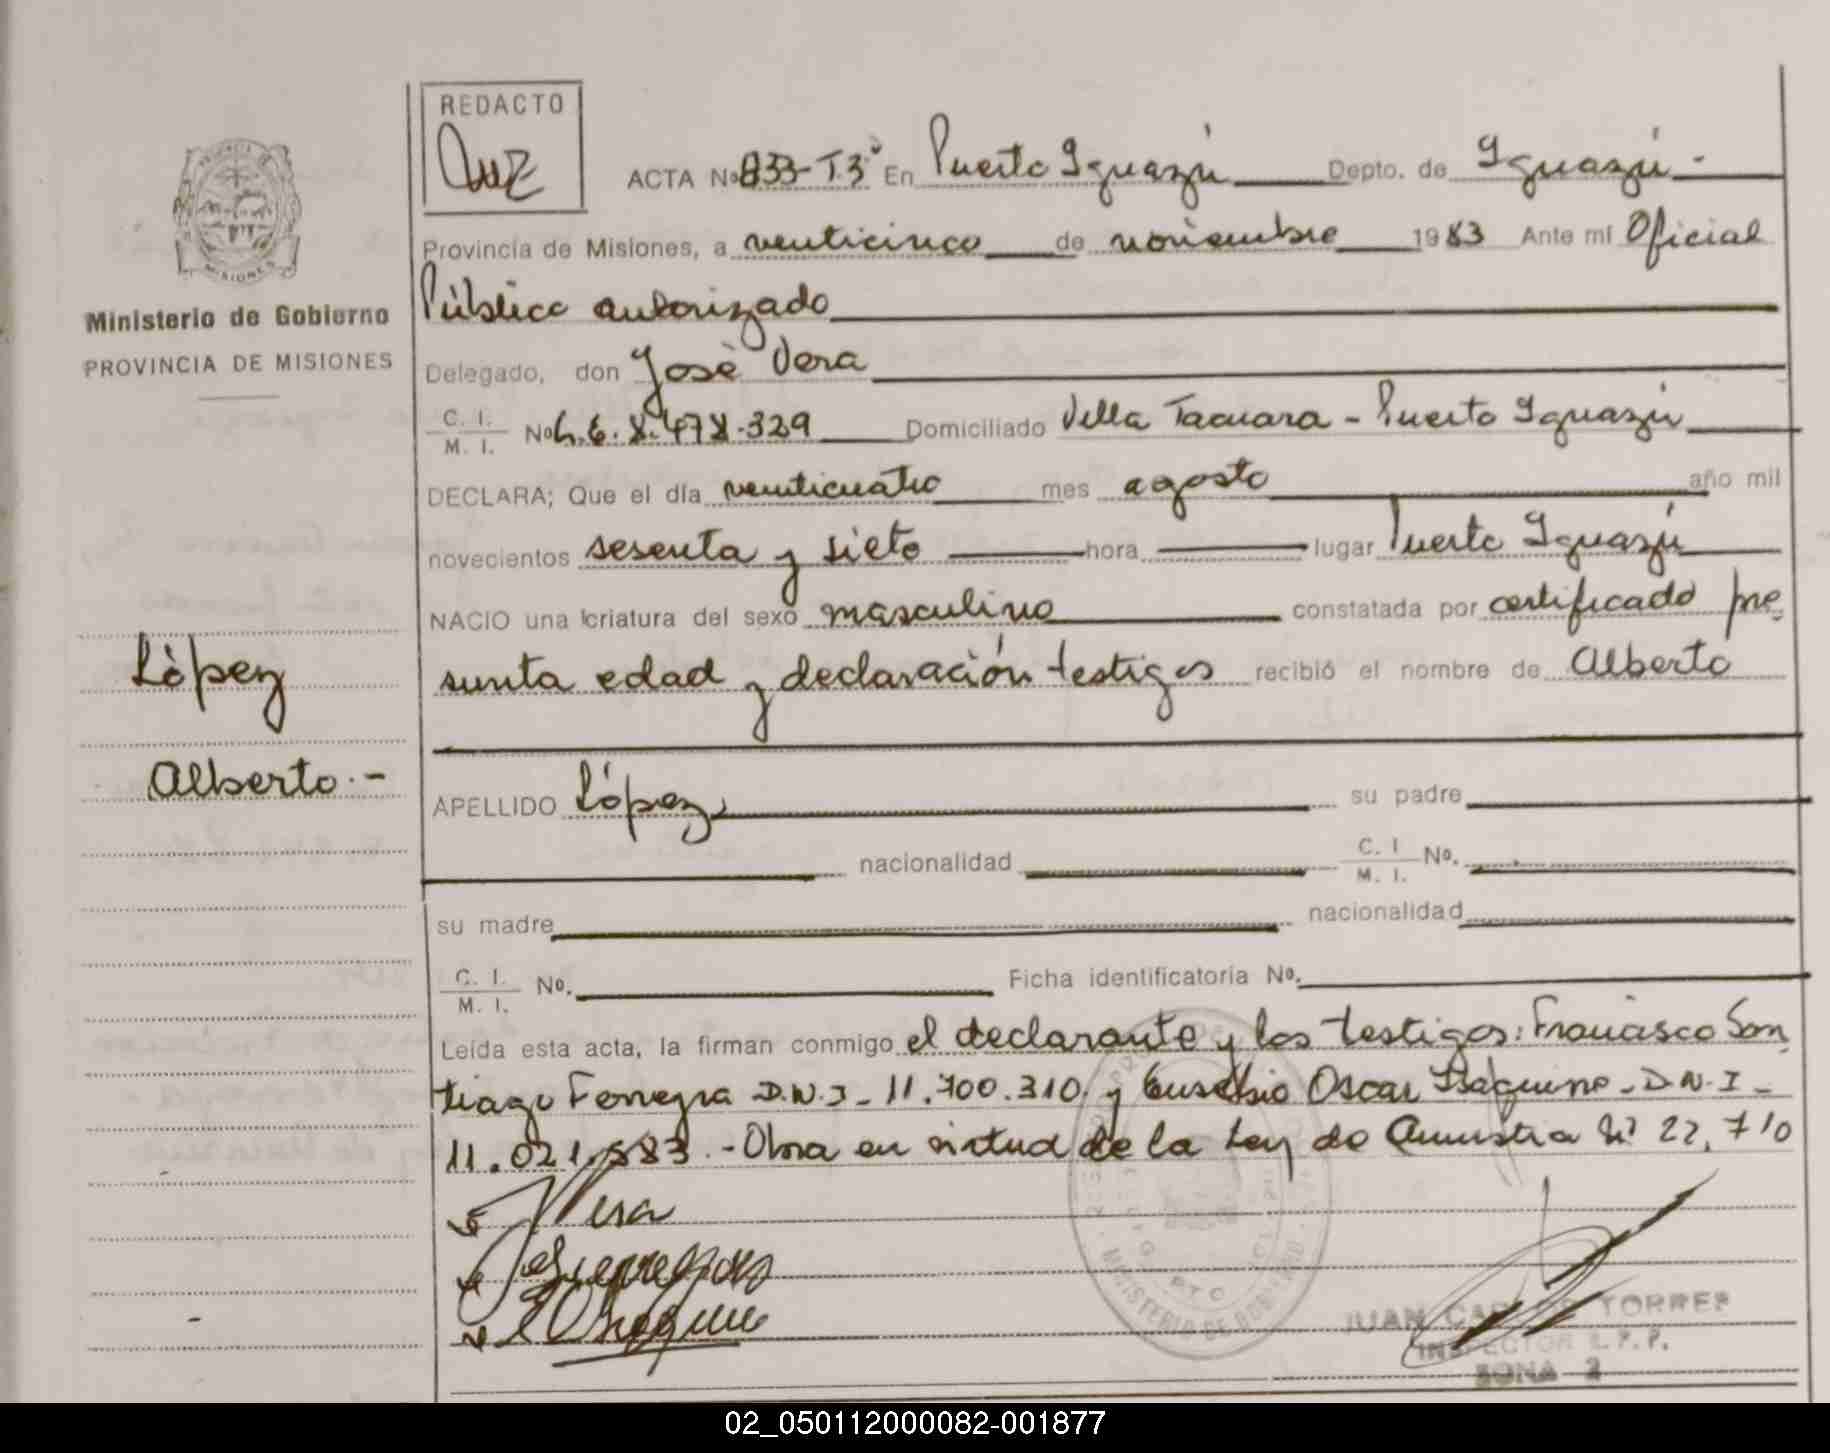 REDACTO
ACTA Nº 833-T.3º En Puerto Iguazú Depto. de Iguazú.-
Provincia de Misiones, a veinticinco de noviembre 1983 Ante mí Oficial
Público autorizado
Ministerio de Gobierno
PROVINCIA DE MISIONES
Delegado, don José Vera
C. I.
M. I. Nº 478.329 Domiciliado Villa Tacuara - Puerto Iguazú
DECLARA; Que el día veinticuatro mes agosto año mil
novecientos sesenta y siete hora lugar Puerto Iguazú
NACIO una criatura del sexo masculino constatada por certificado pre
sunta edad y declaración testigos recibió el nombre de Alberto
López
Alberto.-
APELLIDO López su padre
nacionalidad C. I. M. I. Nº.
su madre nacionalidad
C. I. M. I. Nº. Ficha identificatoria Nº.
Leída esta acta, la firman conmigo el declarante y los testigos: Francisco San
tiago Ferreyra D.N.I - 11.700.310. y Eusebio Oscar D.N.I -
11.021.583.- Obra en virtud de la Ley de Amnistia Nº 22.710
Vera
MINISTERIO DE GOBIERNO
JUAN CARLOS TORRES
INSPECTOR R.P.P.
ZONA 2
02_050112000082-001877